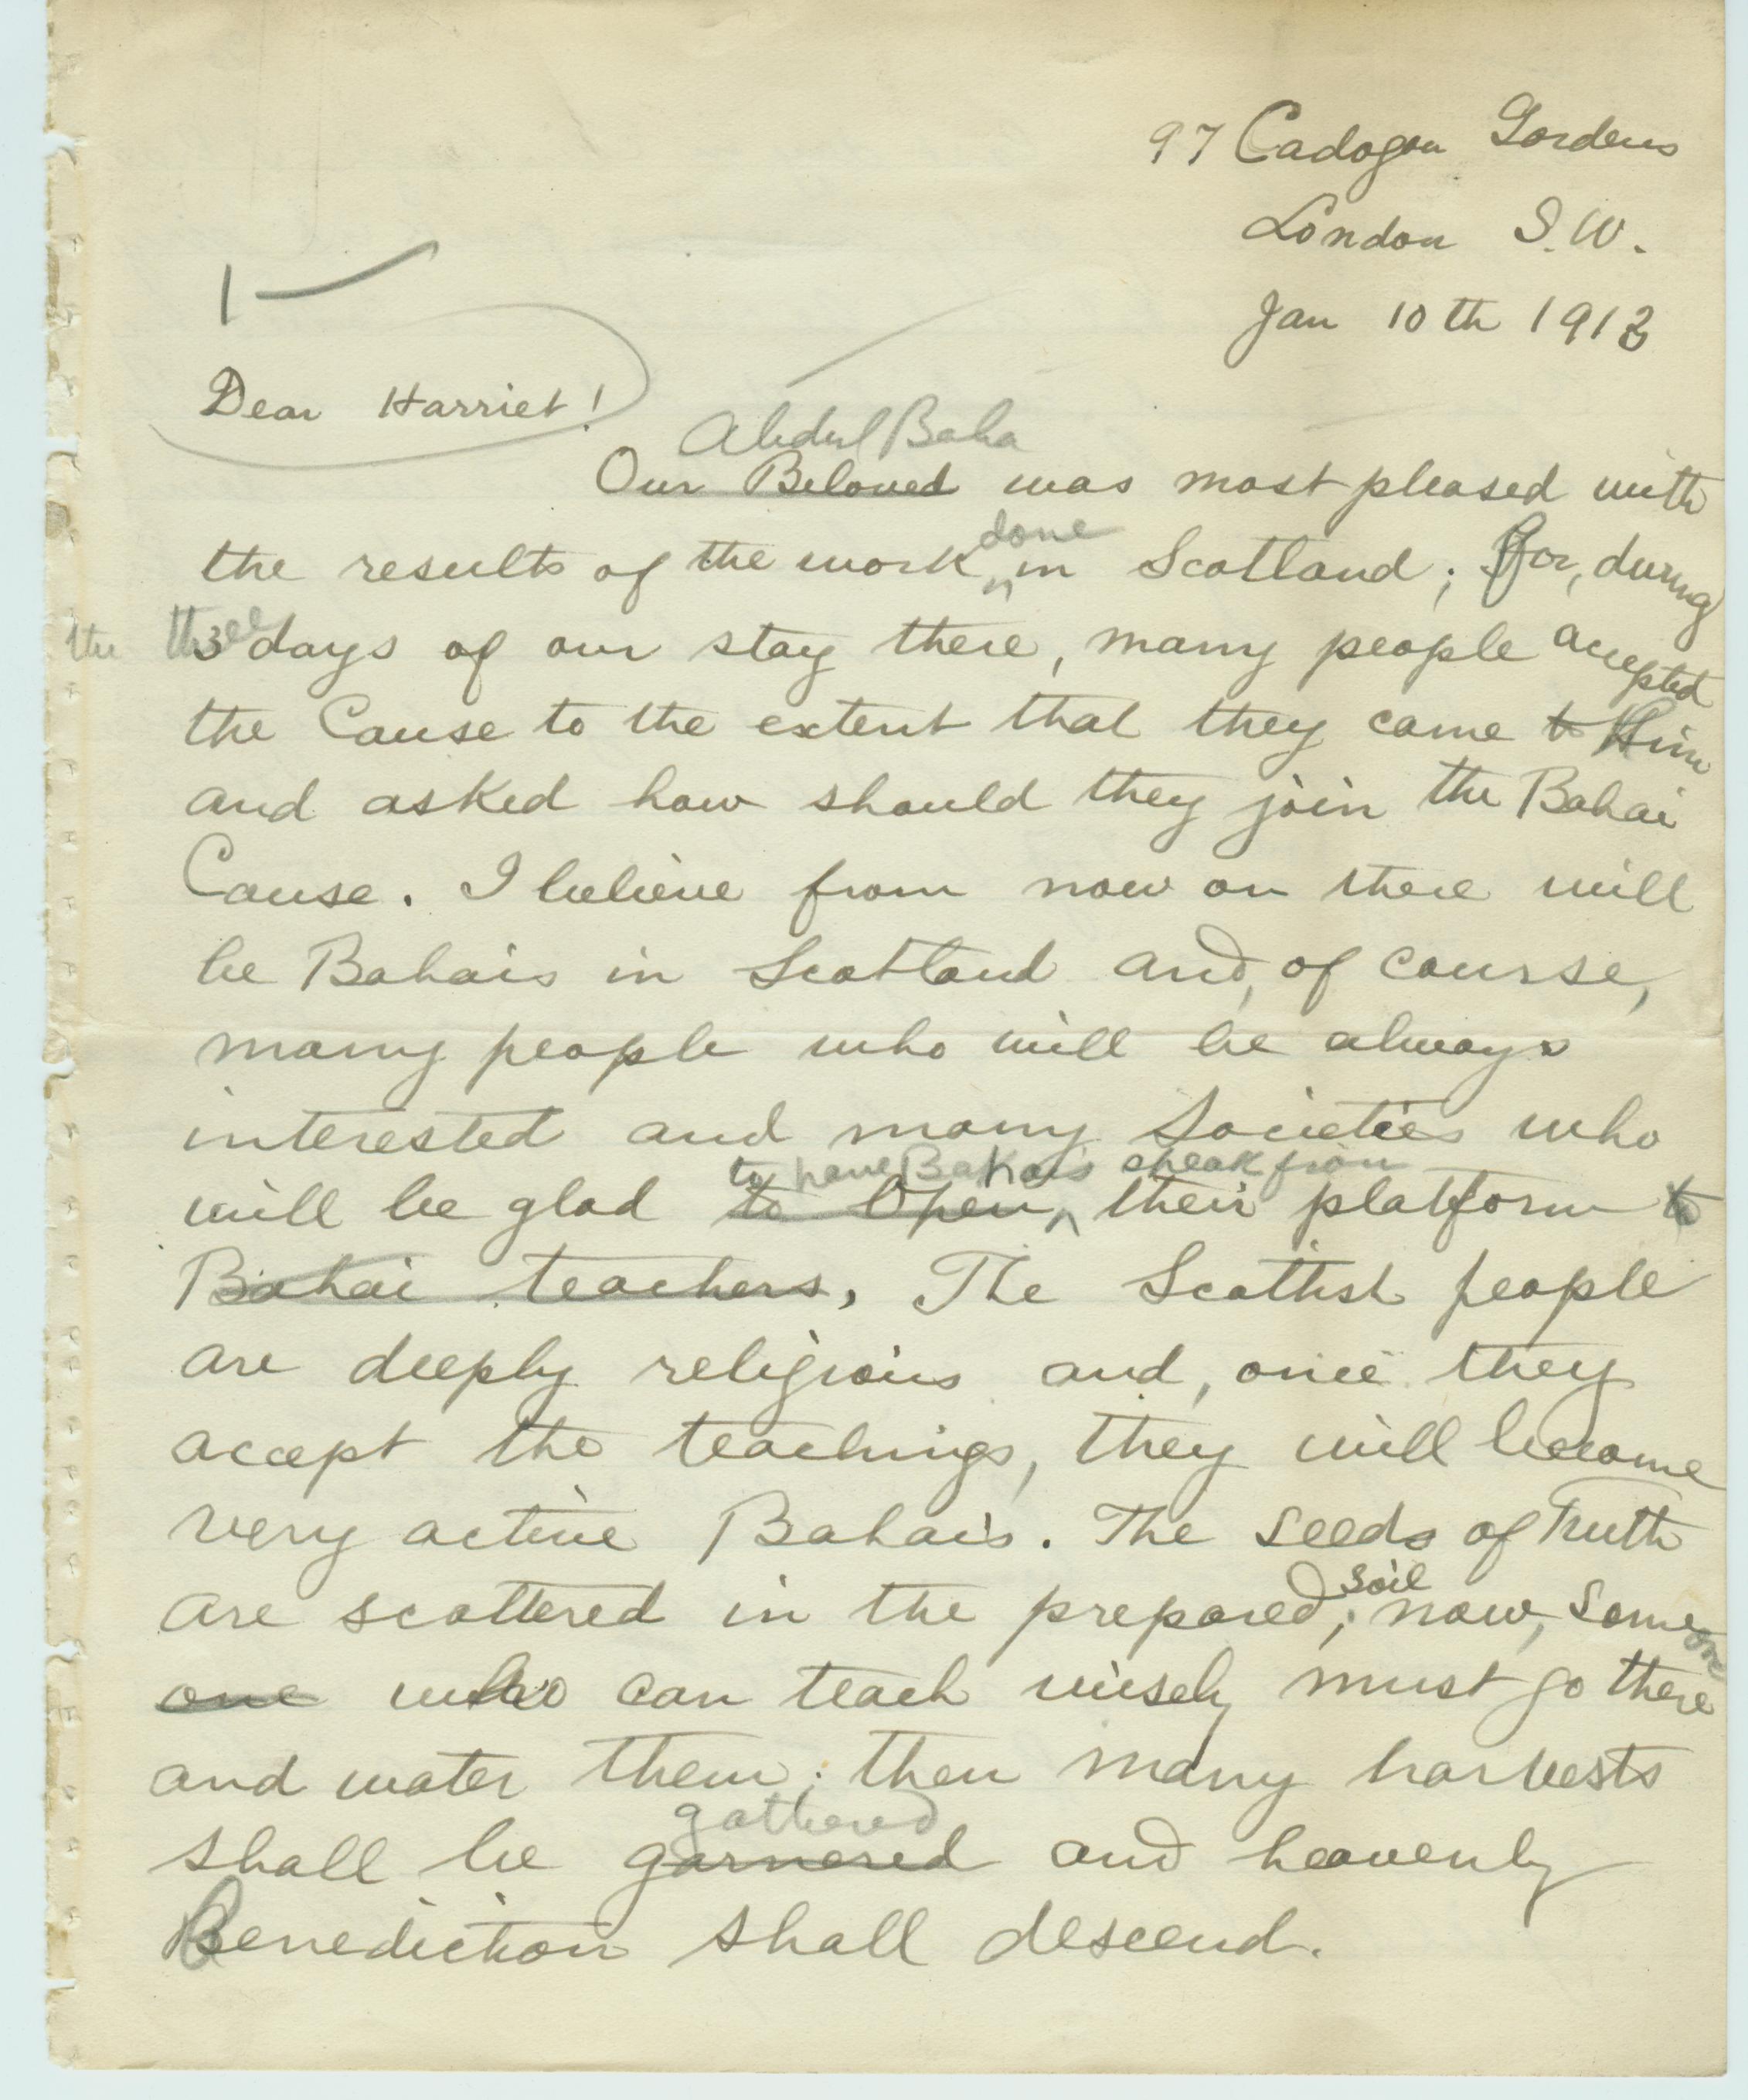 97 Cadogan Gardens
London S.W.
Jan 10th 1913
1
Dear Harriet!
Abdul Baha
Our Beloved was most pleased with
done
the results of the work in Scotland; for, during
the three 3 days of our stay there, many people accepted
the Cause to the extent that they came to Him
and asked how should they join the Bahai
Cause. I believe from now on there will
be Bahais in Scotland and, of course,
many people who will be always
interested and many Societies who
to have Bahais speak from
will be glad to Open, their platform to
Bahai teachers. The Scottish people
are deeply religious and, once they
accept the teachings, they will become
very active Bahais. The seeds of Truth
soil
are scattered in the prepared; now, some one
one who can teach wisely must go there
and water them; then many harvests
gathered
shall be garnered and heavenly
Benediction shall descend.